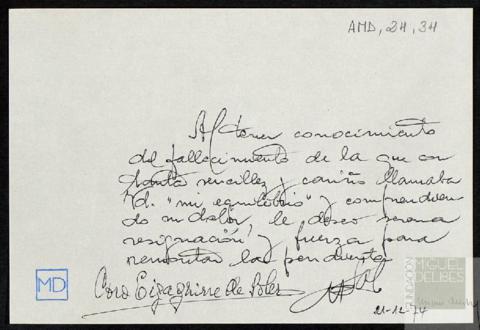 AMD, 24, 34
Al tener conocimiento
del fallecimiento de la que con
tanta sencillez y cariño llamaba
Vd. "mi equilibrio" y comprendien-
do su dolor, le deseo serena
resignación, y fuerza para
remontar la pendiente
Coro Eizaguirre de Soler
21-12-74
MD
FUNDACIÓN
MIGUEL
DELIBES